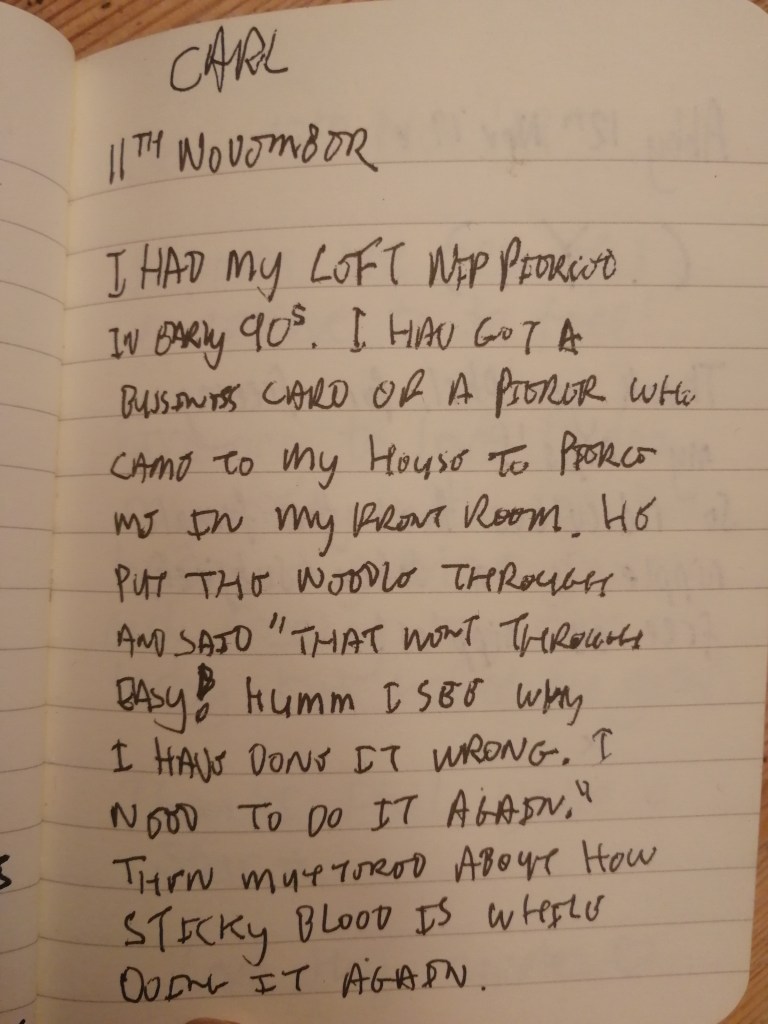 CARL
11TH NOVEMBER
I HAD MY LEFT NIP PIERCED
IN EARLY 90s. I HAD GOT A
BUSINESS CARD OF A PIERCER WHO
CAME TO MY HOUSE TO PIERCE
ME IN MY FRONT ROOM. HE
PUT THE NEEDLE THROUGH
AND SAID "THAT WENT THROUGH
EASY! HUMM I SEE WHY
I HAVE DONE IT WRONG. I
NEED TO DO IT AGAIN."
THEN MUTTERED ABOUT HOW
STICKY BLOOD IS WHILE
DOING IT AGAIN.